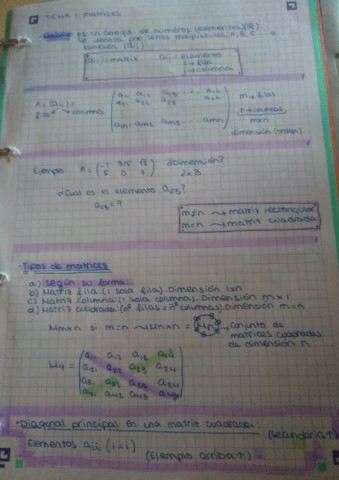 TEMA 1: MATRICES
· Matriz es un arreglo de números (elementos) (R).
Se denota por letras mayúsculas, A, B, C... o
también (aij)
(aij) = matriz aij = elementos
i → fila
j → columna
A = (aij) =
fila columna
a11 a12 a13 ... a1n
a21 a22 a23 a2n
am1 am2 am3 ... amn
m → filas
n → columnas
m×n
dimensión (orden)
Ejemplo A = ( -1 3/5 √3 ) ¿dimensión?
5 0 7 2×3
¿Cuál es el elemento a23?
a23 = 7
m≠n → matriz rectangular
m=n → matriz cuadrada
· Tipos de matrices
a) según su forma:
b) Matriz fila. (1 sola fila). Dimensión 1×n
c) Matriz columna. (1 sola columna). Dimensión m×1
d) Matriz cuadrada. (nº filas = nº columnas). Dimensión m=n
Mm×n si m=n → Mn×n = Mn → Conjunto de
matrices cuadradas
de dimensión n
M4 =
a11 a12 a13 a14
a21 a22 a23 a24
a31 a32 a33 a34
a41 a42 a43 a44
· Diagonal principal en una matriz cuadrada:
(Secundaria ↑)
Elementos aii (i=i)
(Ejemplo arriba ↑)